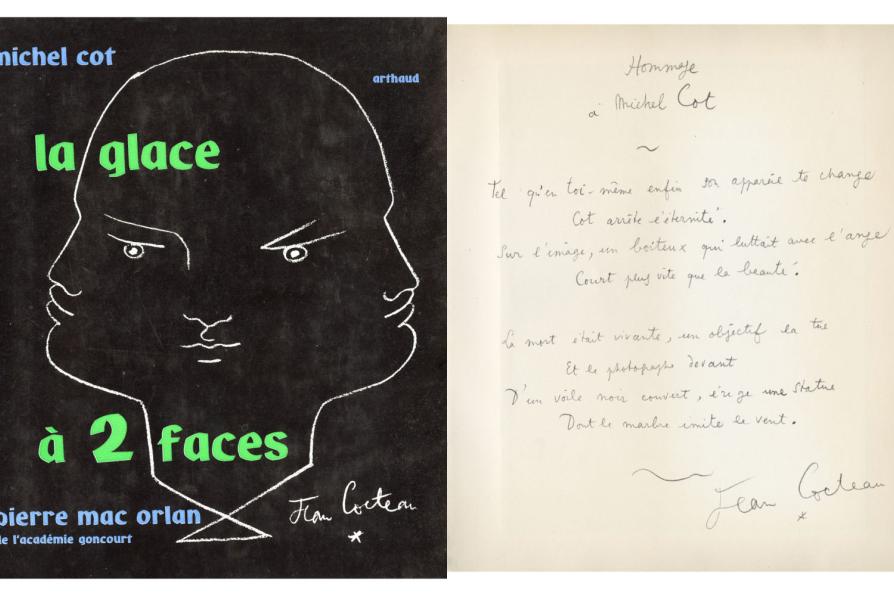 michel cot
arthaud
la glace
à 2 faces
pierre mac orlan
de l'académie goncourt
Jean Cocteau
*
Hommage
à Michel Cot
~
Tel qu'en toi-même enfin son appareil te change
Cot arrête l'éternité.
Sur l'image, un boiteux qui luttait avec l'ange
Court plus vite que la beauté.
La mort était vivante, un objectif la tue
Et le photographe devant
D'un voile noir couvert, érige une statue
Dont le marbre imite le vent.
Jean Cocteau
*